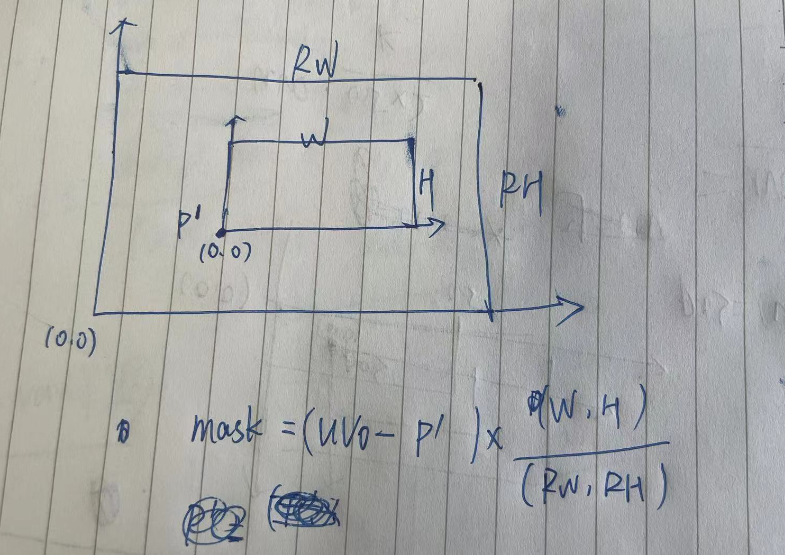 RW
W
H
RH
P'
(0.0)
(0.0)
mask = (UV0 - P') x (W, H)
(RW, RH)